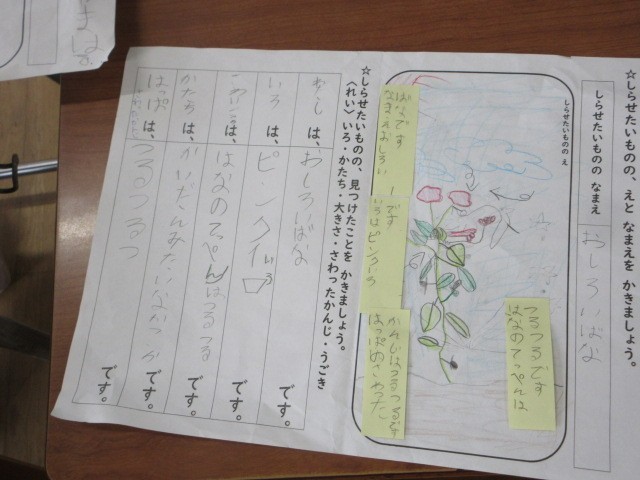 ☆しらせたいものの、えと なまえを かきましょう。
しらせたいものの なまえ
おしろいばな
しらせたいものの え
つるつるです
はなのてっぺんは
ばなです
なまえおしろい
です
いろはピンクいろ
かんじはつるつるです
はっぱのさわった
☆しらせたいものの、見つけたことを かきましょう。
〈れい〉いろ・かたち・大きさ・さわったかんじ・うごき
は、おしろいばな です。
いろ は、ピンクいろ です。
は、はなのてっぺんはつるつる です。
かたち は、かいだんみたい です。
はっぱ は、つるつる です。